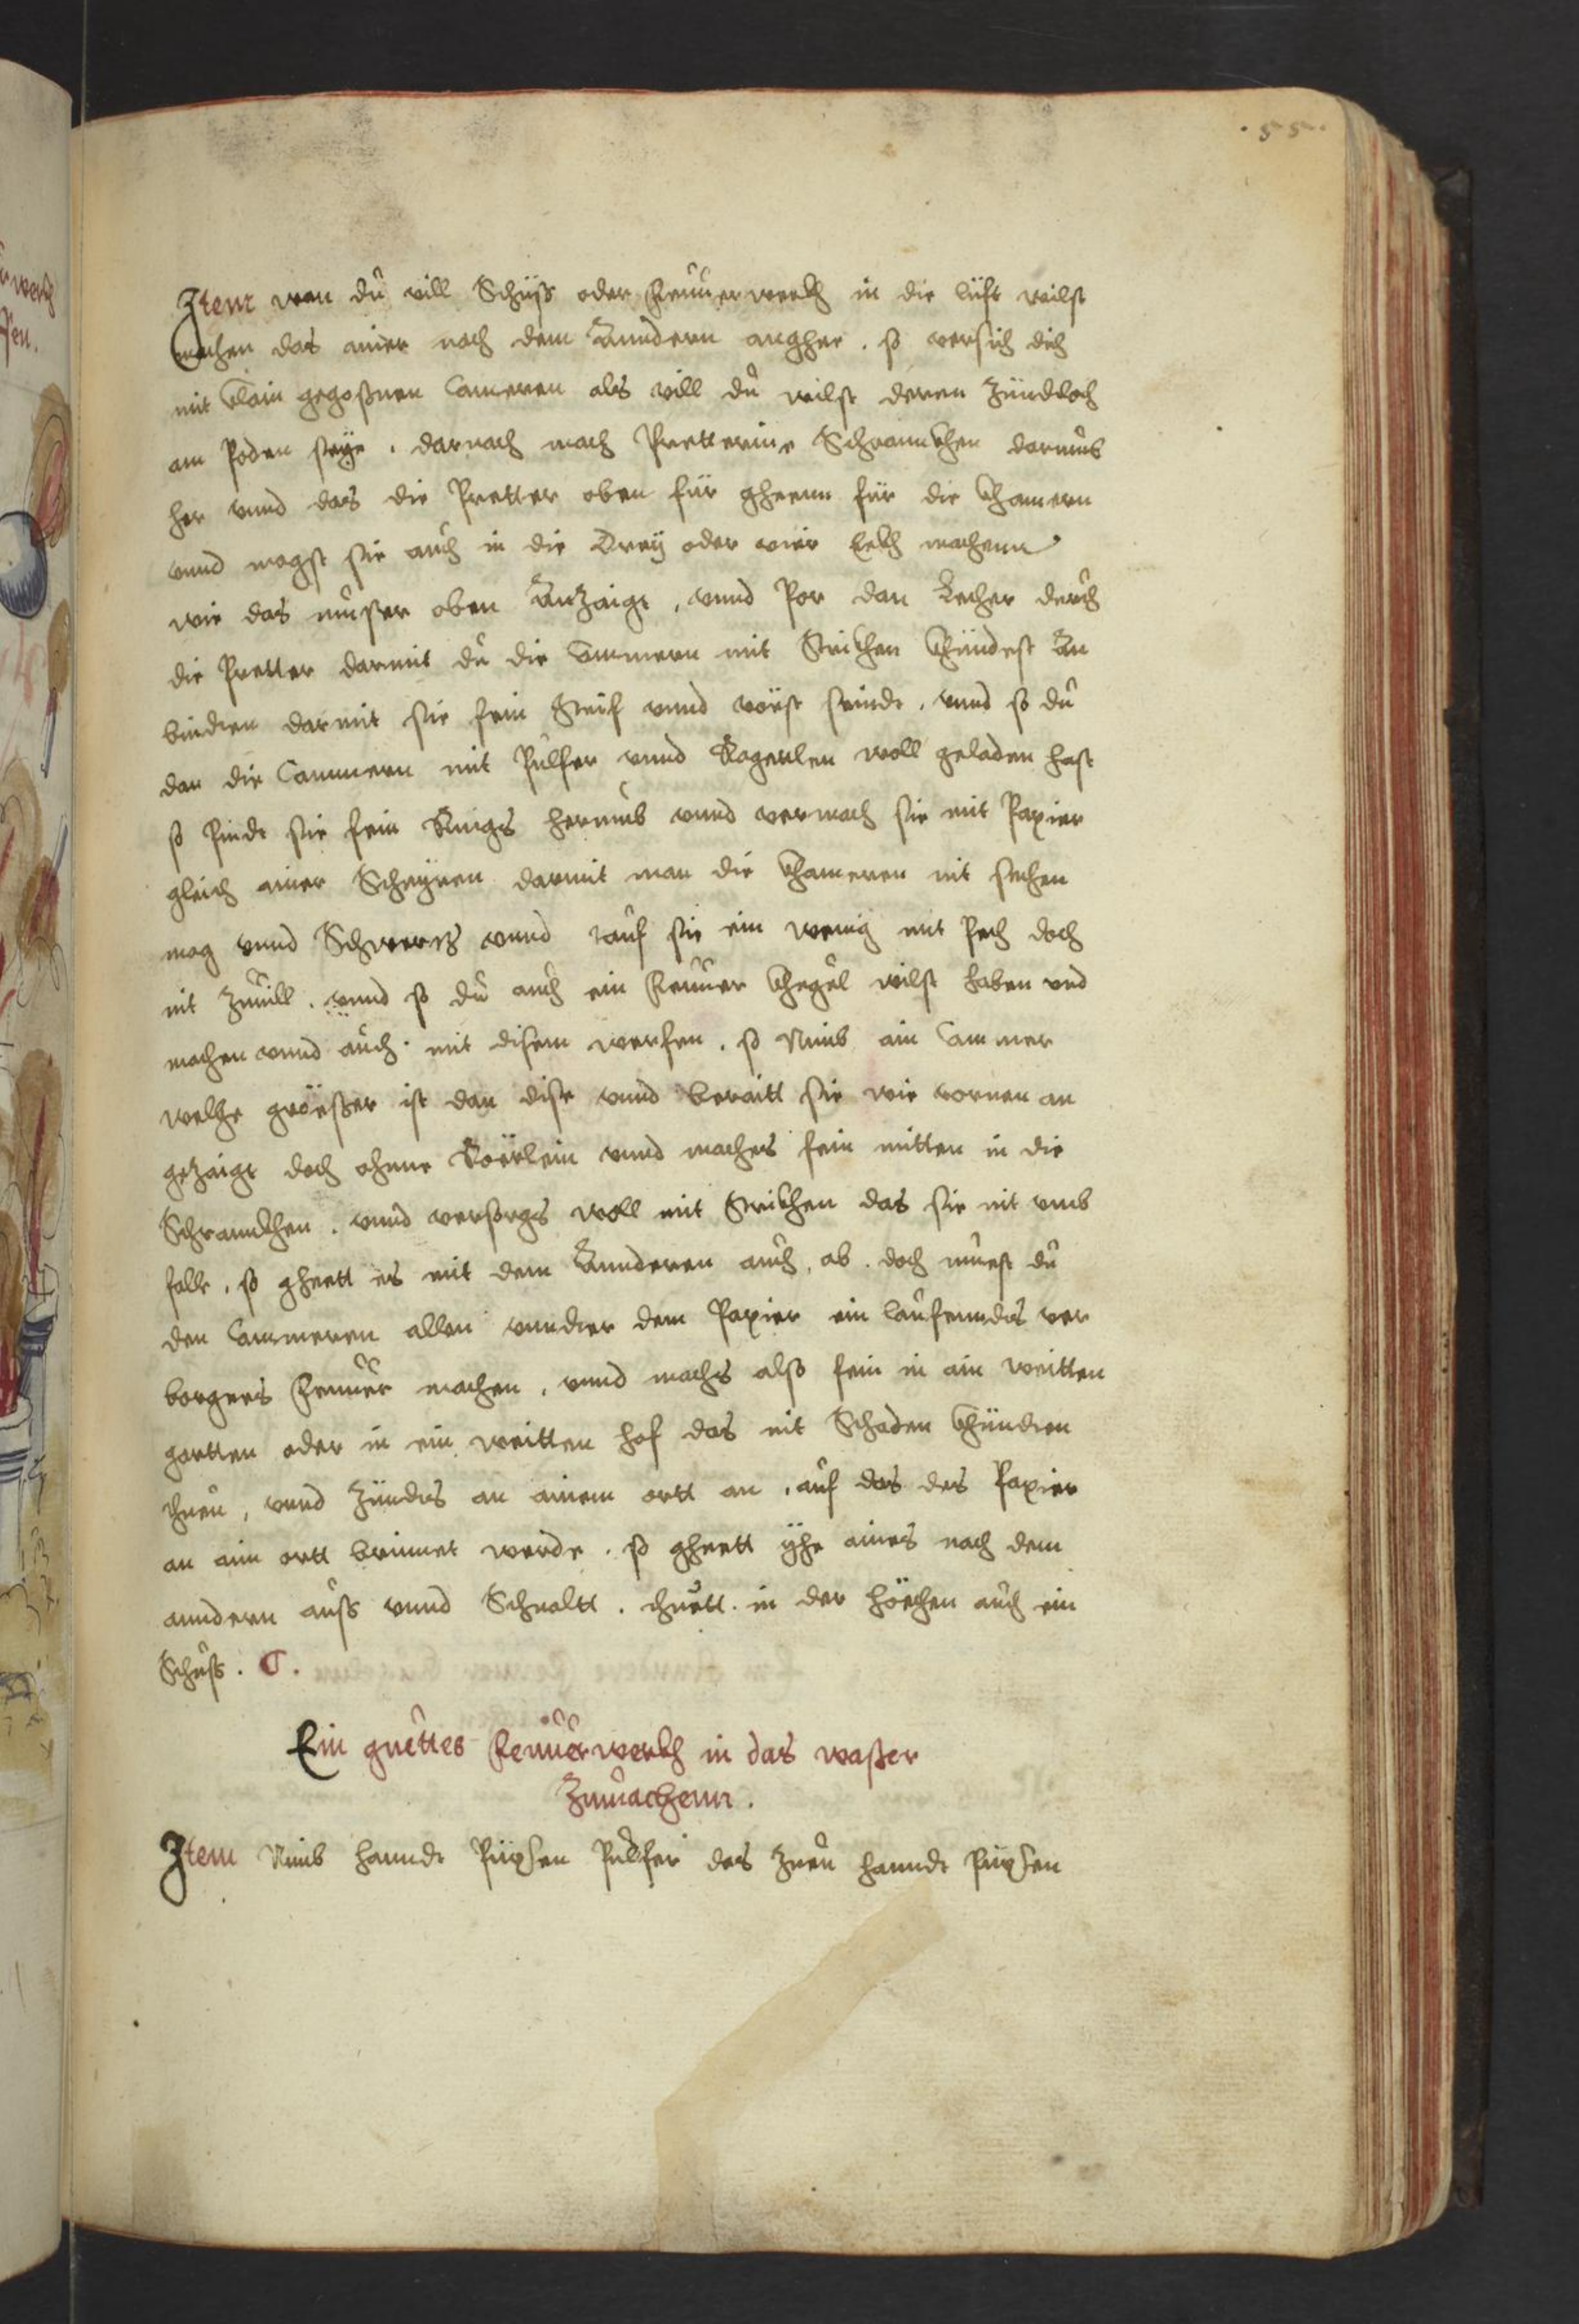 .55.
Item wan dů vill Schüß oder Feuůerwerkh in die lüft wilst
machen das ainer nach dem Anndern anghee . so versich dich
mit klain gegoßnen Cameren als vill dů wilst deren Zündtloch
am Poden seye . darnach mach Pretterine Schrannkhen darumb
her vnnd das die Pretter oben für gheenn für die khamern
vnnd magst sie aůch in die Drey oder vier Eekh machenn
wie das můster oben Anzaigt , vnnd Por dan Lecher důrch
die Pretter darmit dů die Cammern mit Strikhen khündest An
binden darmit sie fein Steif vnnd vöest seindt . vnnd so dů
dan die Cammern mit Půlfer vnnd Ragetlen woll geladen hast
so Pindt sie fein Rings herumb vnnd vermach sie mit Papier
gleich ainer Scheyren darmit man die khameren nit sechen
mag vnnd Schwerts vnnd tauf sie ein wenig mit Pech doch
nit Zůuill . vnnd so dů aůch ein Feuůer khugel wilst haben vnd
machen vnnd aůch mit disem werfen . so Nimb ain Cammer
welche gröesser ist dan dise vnnd beraitt sie wie vornen an
gezaigt doch ohnne Röerlein vnnd machs fein mitten in die
Schrannkhen . vnnd versorgs woll mit Strikhen das sie nit vmb
falle , so gheett es mit dem Annderen aůch , ab . doch můest dů
den Cammeren allen vnnder dem Papier ein laůfenndes ver
borgens Feuůer machen , vnnd machs also fein in ain weitten
gartten oder in ein weitten hof das nit Schaden khünden
thuen , vnnd Zündts an ainem ortt an , aůf das das Papier
an aim ortt brinnet werde . so gheett yhe aines nach dem
anndern aůß vnnd Schnaltt . thuett in der höechen aůch ein
Schůß .
Ein guettes Feuůerwerkh in das waßer
Zumachenn .
Item Nimb hanndt Püxsen Půlfer das Zuen hanndt Püxsen